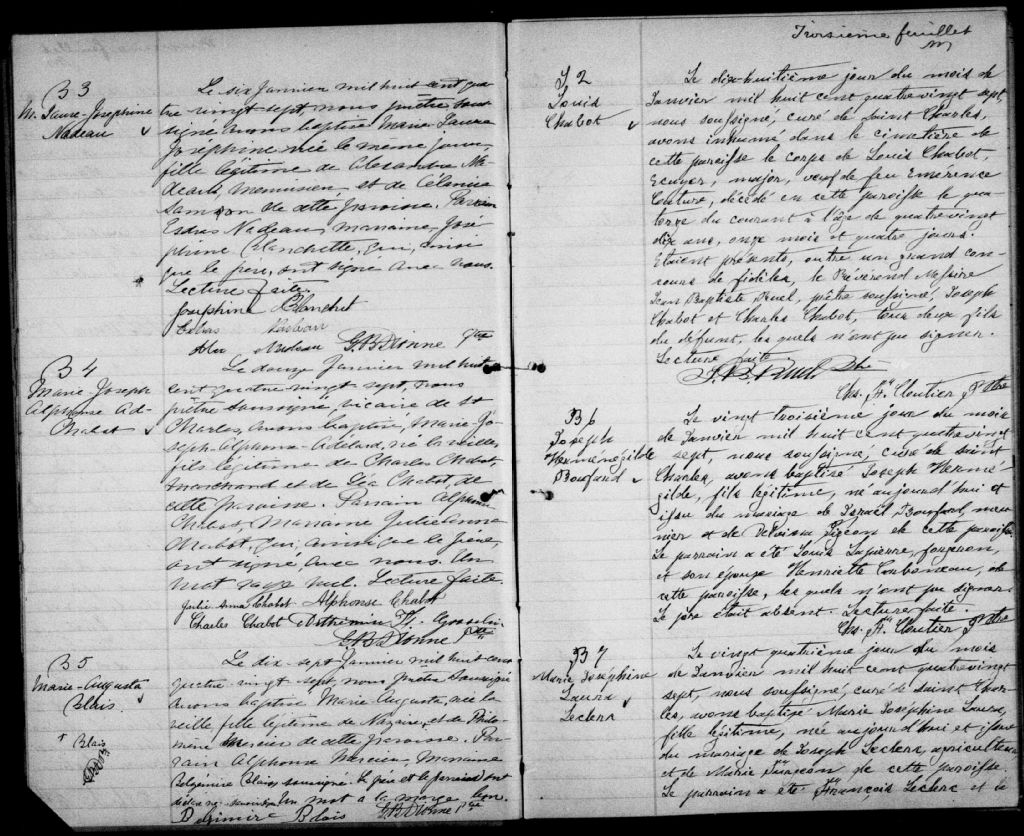 B 3
M. Laure-Josephine
Nadeau
Le six Janvier mil huit cent qua
tre vingt sept, nous prêtre sous-
signé avons baptisé Marie-Laure
Josephine née le même jour,
fille légitime de Alexandre Na-
deau, menuisier, et de Célanise
Samson de cette paroisse. Parrain
Esdras Nadeau, marraine, José-
phine Blanchette, qui, ainsi
que le père, ont signé avec nous.
Lecture faite.
Josephine Blanchet
Esdras Nadeau
Alex Nadeau G.B Dionne Ptre
B 4
Marie Joseph
Alphonse Ad-
Chabot
Le douze Janvier mil huit
cent quatre vingt sept, nous
prêtre soussigné, vicaire de St
Charles, avons baptisé, Marie-Jo-
seph-Alphonse-Adélard, né la veille,
fils légitime de Charles Chabot,
marchand et de Léa Chabot, de
cette paroisse. Parrain Alphonse
Chabot, Marraine Julie Anna
Chabot, qui, ainsi que le père,
ont signé avec nous. Un
mot rayé nul. Lecture faite.
Julie Anna Chabot Alphonse Chabot
Charles Chabot Gosselin
G.B Dionne Ptre
B 5
Marie-Augusta
Blais
+ Blais
Le dix-sept Janvier mil huit cent
quatre vingt sept, nous Prêtre soussigné
avons baptisé Marie-Augusta, née la
veille, fille légitime de Nazaire, et de Philo-
mène Mercier de cette paroisse. Par-
rain Alphonse Mercier, Marraine
Blais, soussigné. Le père et le parrain ont
déclaré ne savoir signer. Un mot à la marge bon.
Blais G.B Dionne Ptre
Troisième feuillet
S 2
Louis
Chabot
Le dix-huitième jour du mois de
Janvier mil huit cent quatrevingt sept,
nous soussigné, curé de Saint Charles,
avons inhumé dans le cimetière de
cette paroisse le corps de Louis Chabot,
Ecuyer, major, veuf de feu Emerence
Couture, décédé en cette paroisse le qua-
torze du courant à l'âge de quatrevingt
dix ans, onze mois et quatre jours.
Etaient présents, outre un grand con-
cours de fidèles, le Révérend Messire
Jean Baptiste Ruel, prêtre soussigné, Joseph
Chabot et Charles Chabot, tous deux fils
du défunt, les quels n'ont pu signer.
Lecture faite
J. B. Ruel Ptre
Chs. A. Cloutier Ptre
B 6
Joseph
Herménégilde
Bouffard
Le vingt troisième jour du mois
de Janvier mil huit cent quatrevingt
sept, nous soussigné, curé de Saint
Charles, avons baptisé Joseph Hermé-
gilde, fils légitime, né aujourd'hui et
issu du mariage de Israël Bouffard, meu-
nier et de Delvina Pigeon de cette paroisse.
Le parrain a été Louis Lapierre, forgeron,
et son épouse Henriette Corbonneau, de
cette paroisse, les quels n'ont pu signer.
Le père était absent. Lecture faite.
Chs. A. Cloutier Ptre
B 7
Marie Joséphine
Laura
Leclerc
Le vingt quatrième jour du mois
de Janvier mil huit cent quatrevingt
sept, nous soussigné, curé de Saint Char-
les, avons baptisé Marie Josephine Laura,
fille légitime, née aujourd'hui et issue
du mariage de Joseph Leclerc, agriculteur
et de Marie Turgeon de cette paroisse.
Le parrain a été François Leclerc et la